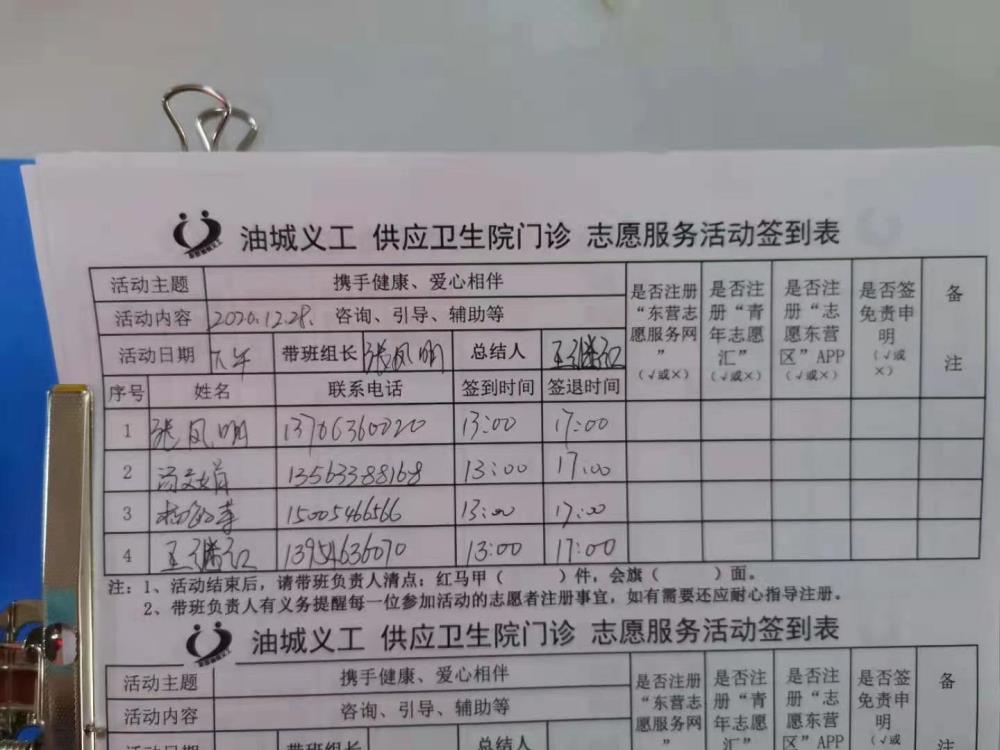 油城义工 供应卫生院门诊 志愿服务活动签到表
活动主题 携手健康、爱心相伴 是否注册“东营志愿服务网”(√或×) 是否注册“青年志愿汇”(√或×) 是否注册“志愿东营区”APP(√或×) 是否签免责申明(√或×) 备注
活动内容 2020.12.28. 咨询、引导、辅助等
活动日期 下午 带班组长 张凤明 总结人 王继红
序号 姓名 联系电话 签到时间 签退时间
1 张凤明 13706360020 13:00 17:00
2 13563388168 13:00 17:00
3 15005466566 13:00 17:00
4 王继红 13954636070 13:00 17:00
注：1、活动结束后，请带班负责人清点：红马甲（ ）件，会旗（ ）面。
2、带班负责人有义务提醒每一位参加活动的志愿者注册事宜，如有需要还应耐心指导注册。
油城义工 供应卫生院门诊 志愿服务活动签到表
活动主题 携手健康、爱心相伴 是否注册“东营志愿服务网” 是否注册“青年志愿汇” 是否注册“志愿东营区”APP 是否签免责申明(√或 备注
活动内容 咨询、引导、辅助等
活动日期 带班组长 总结人